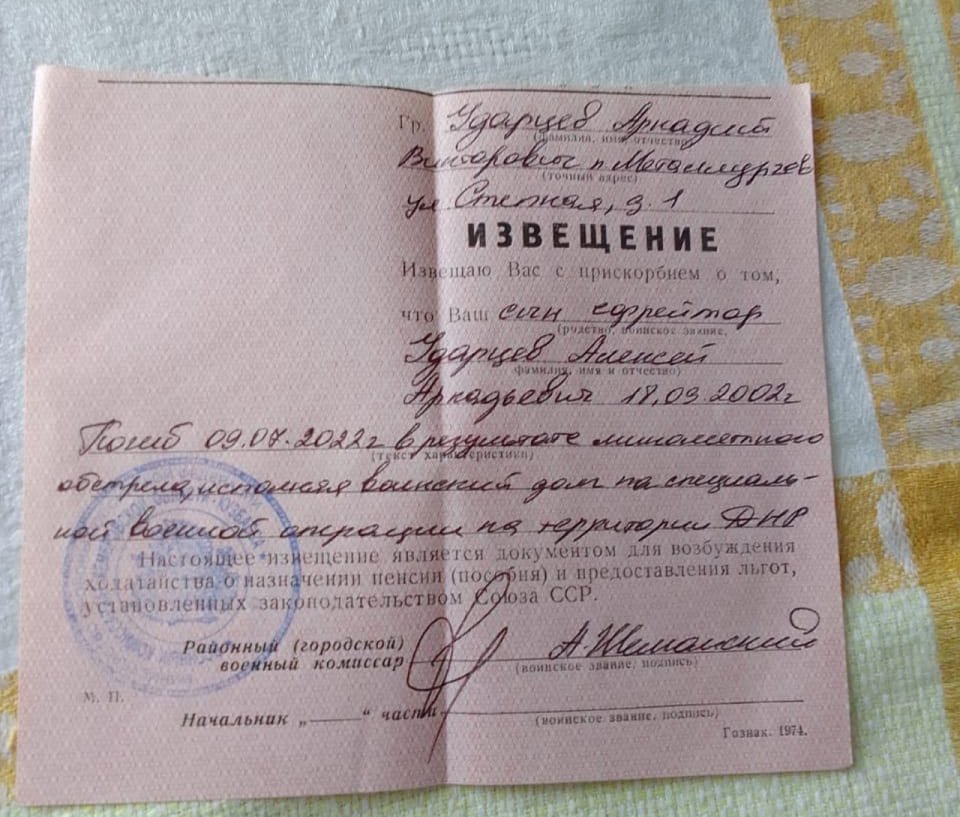 Гр. Ударцев Аркадий
(фамилия, имя, отчество)
Викторович п. Металлургов
(точный адрес)
ул. Степная, д. 1
ИЗВЕЩЕНИЕ
Извещаю Вас с прискорбием о том,
что Ваш сын ефрейтор
(родство, воинское звание,
Ударцев Алексей
фамилия, имя и отчество)
Аркадьевич 18.09.2002г
Погиб 09.07.2022г в результате минометного
(текст характеристики)
обстрела, исполняя воинский долг на специаль-
ной военной операции на территории ДНР
Настоящее извещение является документом для возбуждения
ходатайства о назначении пенсии (пособия) и предоставления льгот,
установленных законодательством Союза ССР.
Районный (городской)
военный комиссар
(воинское звание, подпись)
М. П.
Начальник „ “ части
(воинское звание, подпись)
Гознак. 1974.